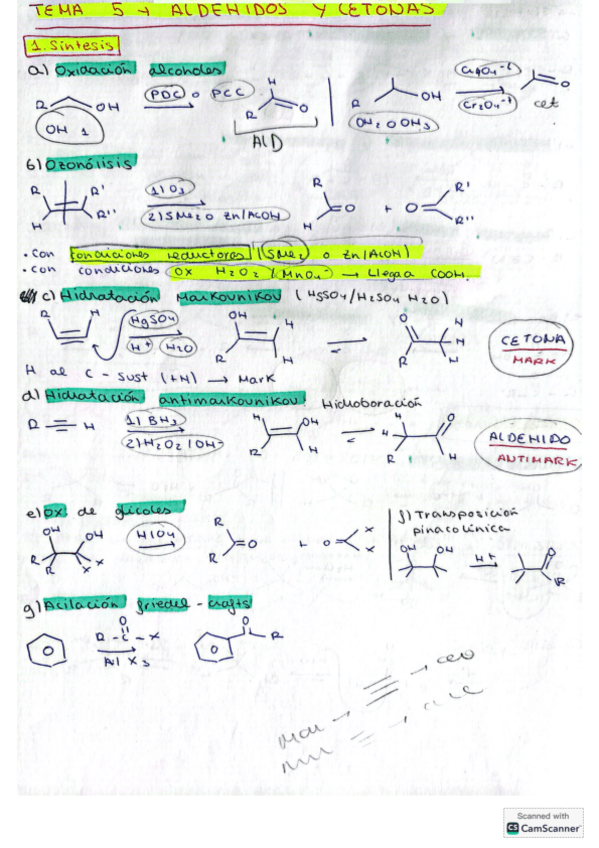 TEMA 5 → ALDEHIDOS Y CETONAS
1. Síntesis
a) Oxidación alcoholes
R OH PDC o PCC H R O R OH CrO4-2 Cr2O4-7 O
OH 1 ALD OH 2 o OH 3 cet
b) Ozonólisis
R R' H R'' 1) O3 2) SMe2 o Zn/AcOH R H O + O R' R''
· Con condiciones reductores (SMe2) o Zn/AcOH)
· con condiciones OX H2O2 / (MnO4- → Llega a COOH.
c) Hidratación Markovnikov (HgSO4/H2SO4 H2O)
R H HgSO4 H+ H2O OH R H H O R H H H
CETONA
MARK
H al C - sust (+H) → Mark
d) Hidratación antimarkovnikov Hidroboración
R H 1) BH3 2) H2O2 / OH- H R OH H H H R O H
ALDEHIDO
ANTIMARK
e) ox. de glicoles
OH OH R R x x HIO4 R R O + O x x
f) Transposición
pinacolínica
OH OH H+ O R
g) Acilación friedel - crafts
O R - C - X Al X3 O R
Scanned with
CS CamScanner